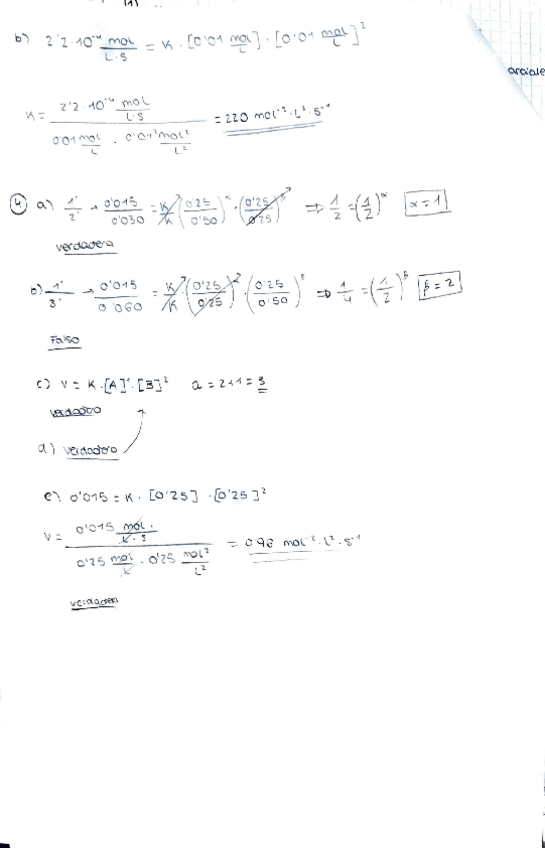 b) 2'2·10⁻⁴ mol/L·s = K · [0'01 mol/L] · [0'01 mol/L]²
K = (2'2·10⁻⁴ mol/L·s) / (0'01 mol/L · 0'01² mol²/L²) = 220 mol⁻²·L²·s⁻¹
④ a) 1'/2' → 0'015/0'030 = K/K (0'25/0'50)^α · (0'25/0'25)^β ⇒ 1/2 = (1/2)^α α = 1
verdadera
b) 1'/3' → 0'015/0'060 = K/K · (0'25/0'25)^α · (0'25/0'50)^β ⇒ 1/4 = (1/2)^β β = 2
Falso
c) V = K·[A]¹·[B]² a = 2+1 = 3
verdadero
d) verdadero
e) 0'015 = K · [0'25] · [0'25]²
V = (0'015 mol·/L·s) / (0'25 mol/L · 0'25 mol²/L²) = 0'96 mol⁻²·L²·s⁻¹